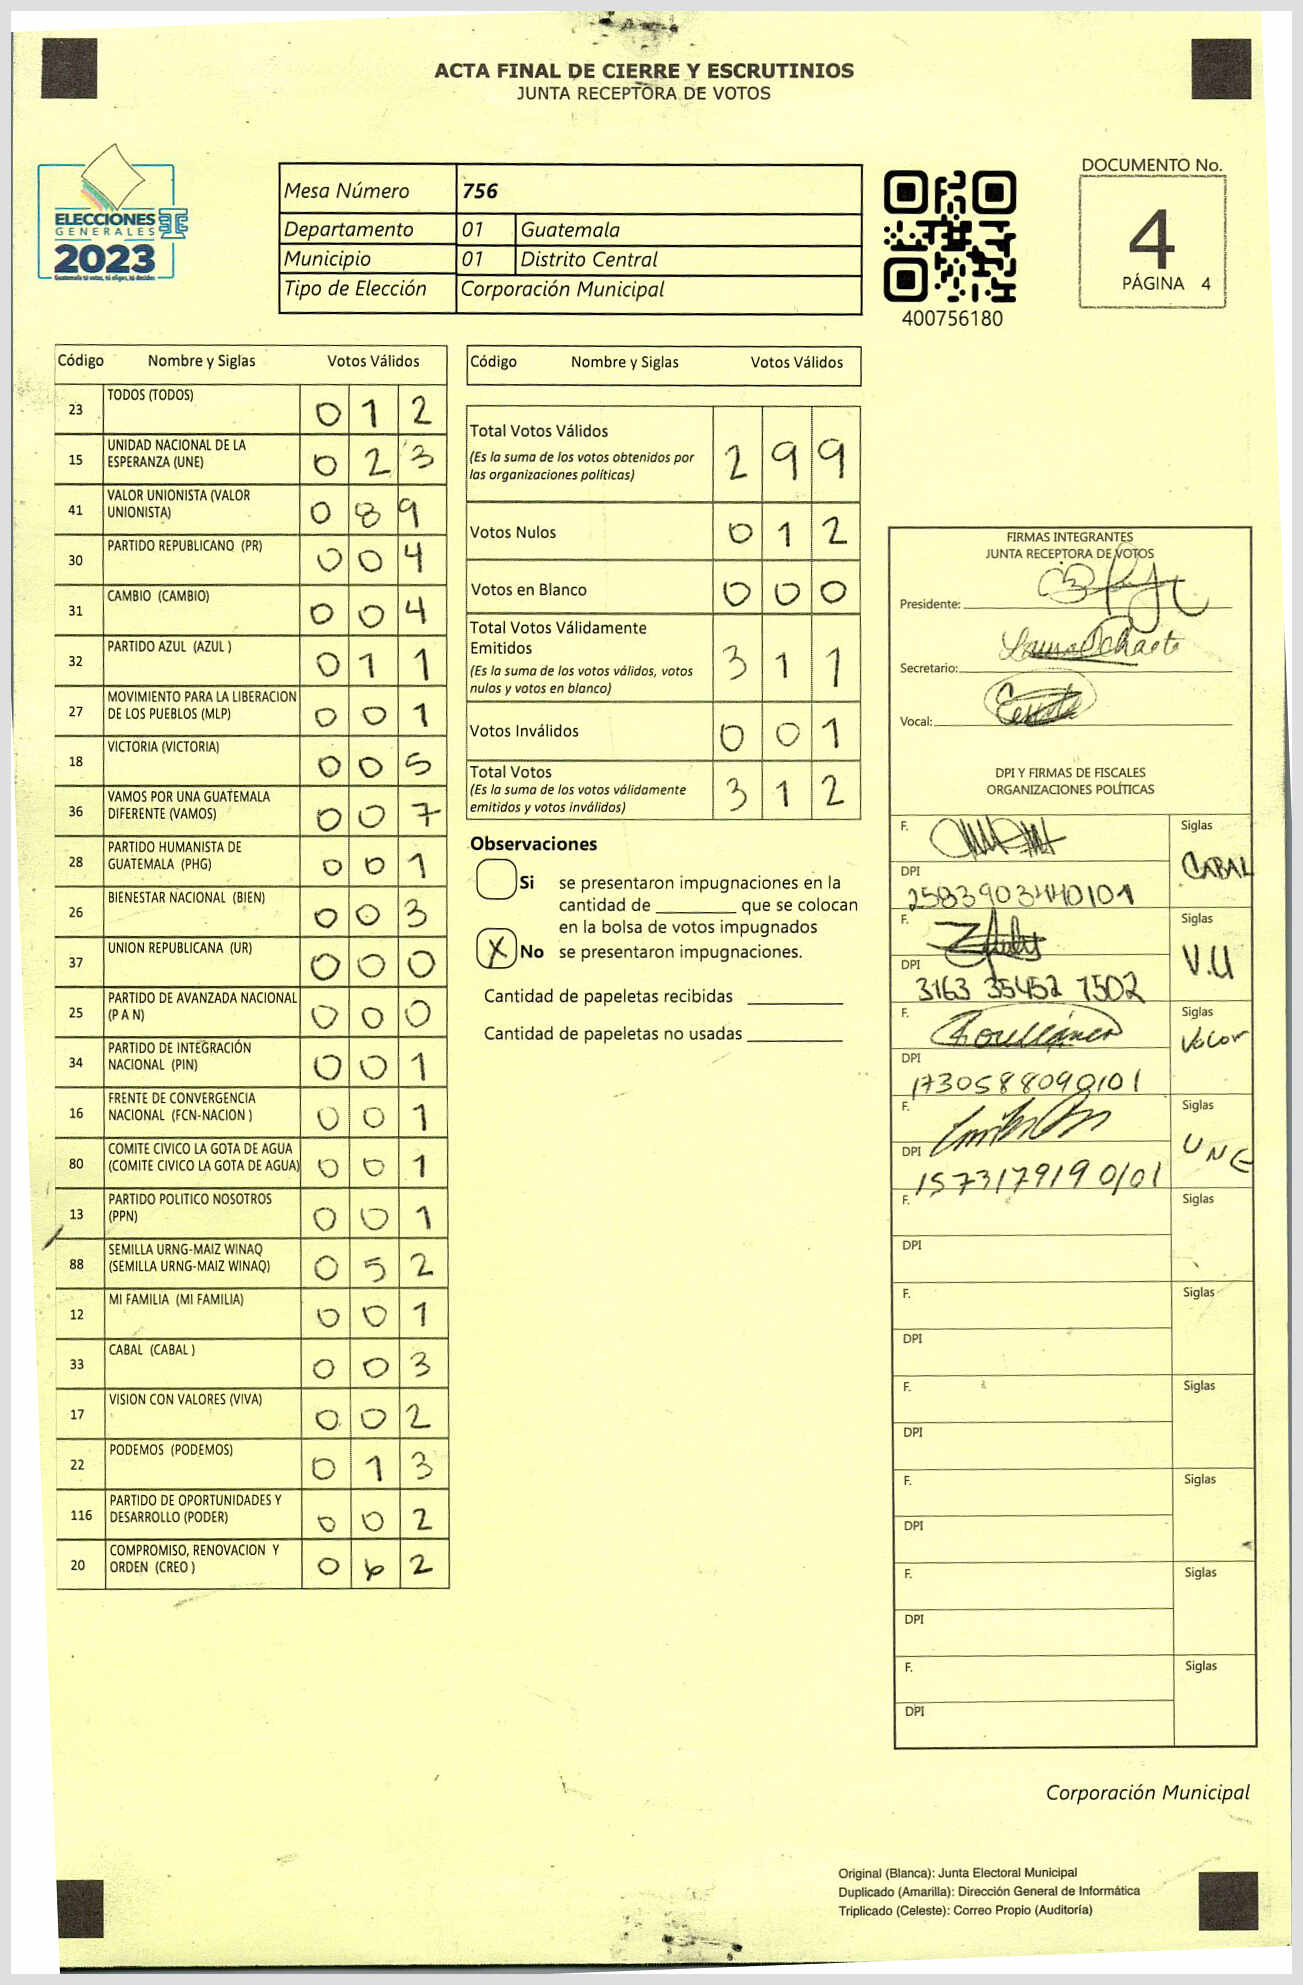 ACTA FINAL DE CIERRE Y ESCRUTINIOS
JUNTA RECEPTORA DE VOTOS
ELECCIONES
GENERALES
2023
Guatemala tú votas, tú eliges, tú decides
Mesa Número 756
Departamento 01 Guatemala
Municipio 01 Distrito Central
Tipo de Elección Corporación Municipal
400756180
DOCUMENTO No.
4
PÁGINA 4
Código Nombre y Siglas Votos Válidos
23 TODOS (TODOS) 0 1 2
15 UNIDAD NACIONAL DE LA
ESPERANZA (UNE) 0 2 3
41 VALOR UNIONISTA (VALOR
UNIONISTA) 0 8 9
30 PARTIDO REPUBLICANO (PR) 0 0 4
31 CAMBIO (CAMBIO) 0 0 4
32 PARTIDO AZUL (AZUL ) 0 1 1
27 MOVIMIENTO PARA LA LIBERACION
DE LOS PUEBLOS (MLP) 0 0 1
18 VICTORIA (VICTORIA) 0 0 5
36 VAMOS POR UNA GUATEMALA
DIFERENTE (VAMOS) 0 0 7
28 PARTIDO HUMANISTA DE
GUATEMALA (PHG) 0 0 1
26 BIENESTAR NACIONAL (BIEN) 0 0 3
37 UNION REPUBLICANA (UR) 0 0 0
25 PARTIDO DE AVANZADA NACIONAL
(P A N) 0 0 0
34 PARTIDO DE INTEGRACIÓN
NACIONAL (PIN) 0 0 1
16 FRENTE DE CONVERGENCIA
NACIONAL (FCN-NACION ) 0 0 1
80 COMITE CIVICO LA GOTA DE AGUA
(COMITE CIVICO LA GOTA DE AGUA) 0 0 1
13 PARTIDO POLITICO NOSOTROS
(PPN) 0 0 1
88 SEMILLA URNG-MAIZ WINAQ
(SEMILLA URNG-MAIZ WINAQ) 0 5 2
12 MI FAMILIA (MI FAMILIA) 0 0 1
33 CABAL (CABAL ) 0 0 3
17 VISION CON VALORES (VIVA) 0 0 2
22 PODEMOS (PODEMOS) 0 1 3
116 PARTIDO DE OPORTUNIDADES Y
DESARROLLO (PODER) 0 0 2
20 COMPROMISO, RENOVACION Y
ORDEN (CREO ) 0 6 2
Código Nombre y Siglas Votos Válidos
Total Votos Válidos
(Es la suma de los votos obtenidos por
las organizaciones políticas) 2 9 9
Votos Nulos 0 1 2
Votos en Blanco 0 0 0
Total Votos Válidamente
Emitidos
(Es la suma de los votos válidos, votos
nulos y votos en blanco) 3 1 1
Votos Inválidos 0 0 1
Total Votos
(Es la suma de los votos válidamente
emitidos y votos inválidos) 3 1 2
Observaciones
Si se presentaron impugnaciones en la
cantidad de ________ que se colocan
en la bolsa de votos impugnados
X No se presentaron impugnaciones.
Cantidad de papeletas recibidas
Cantidad de papeletas no usadas
FIRMAS INTEGRANTES
JUNTA RECEPTORA DE VOTOS
Presidente:
Secretario:
Vocal:
DPI Y FIRMAS DE FISCALES
ORGANIZACIONES POLÍTICAS
F. Siglas
CABAL
DPI
2583903440101
F. Siglas
V.U
DPI
3163 35452 7502
F. Siglas
Valor
DPI
1730588090101
F. Siglas
UNE
DPI
1573179190101
F. Siglas
DPI
F. Siglas
DPI
F. Siglas
DPI
F. Siglas
DPI
F. Siglas
DPI
F. Siglas
DPI
Corporación Municipal
Original (Blanca): Junta Electoral Municipal
Duplicado (Amarilla): Dirección General de Informática
Triplicado (Celeste): Correo Propio (Auditoría)